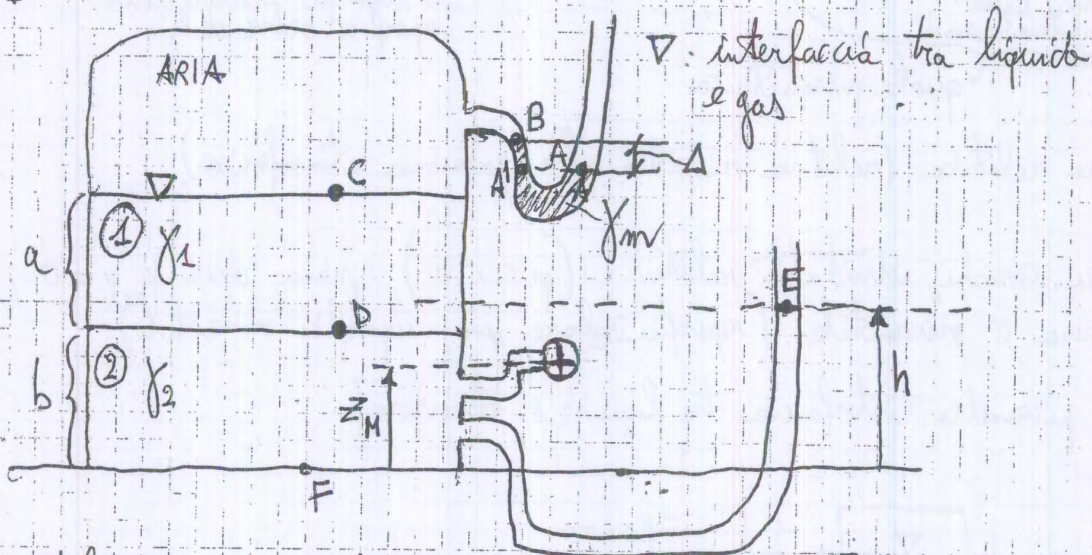 ARIA
∇ interfaccia tra liquido
e gas
B
A
A'
Δ
γm
C
① γ1
a
D
E
② γ2
b
ZM
h
F